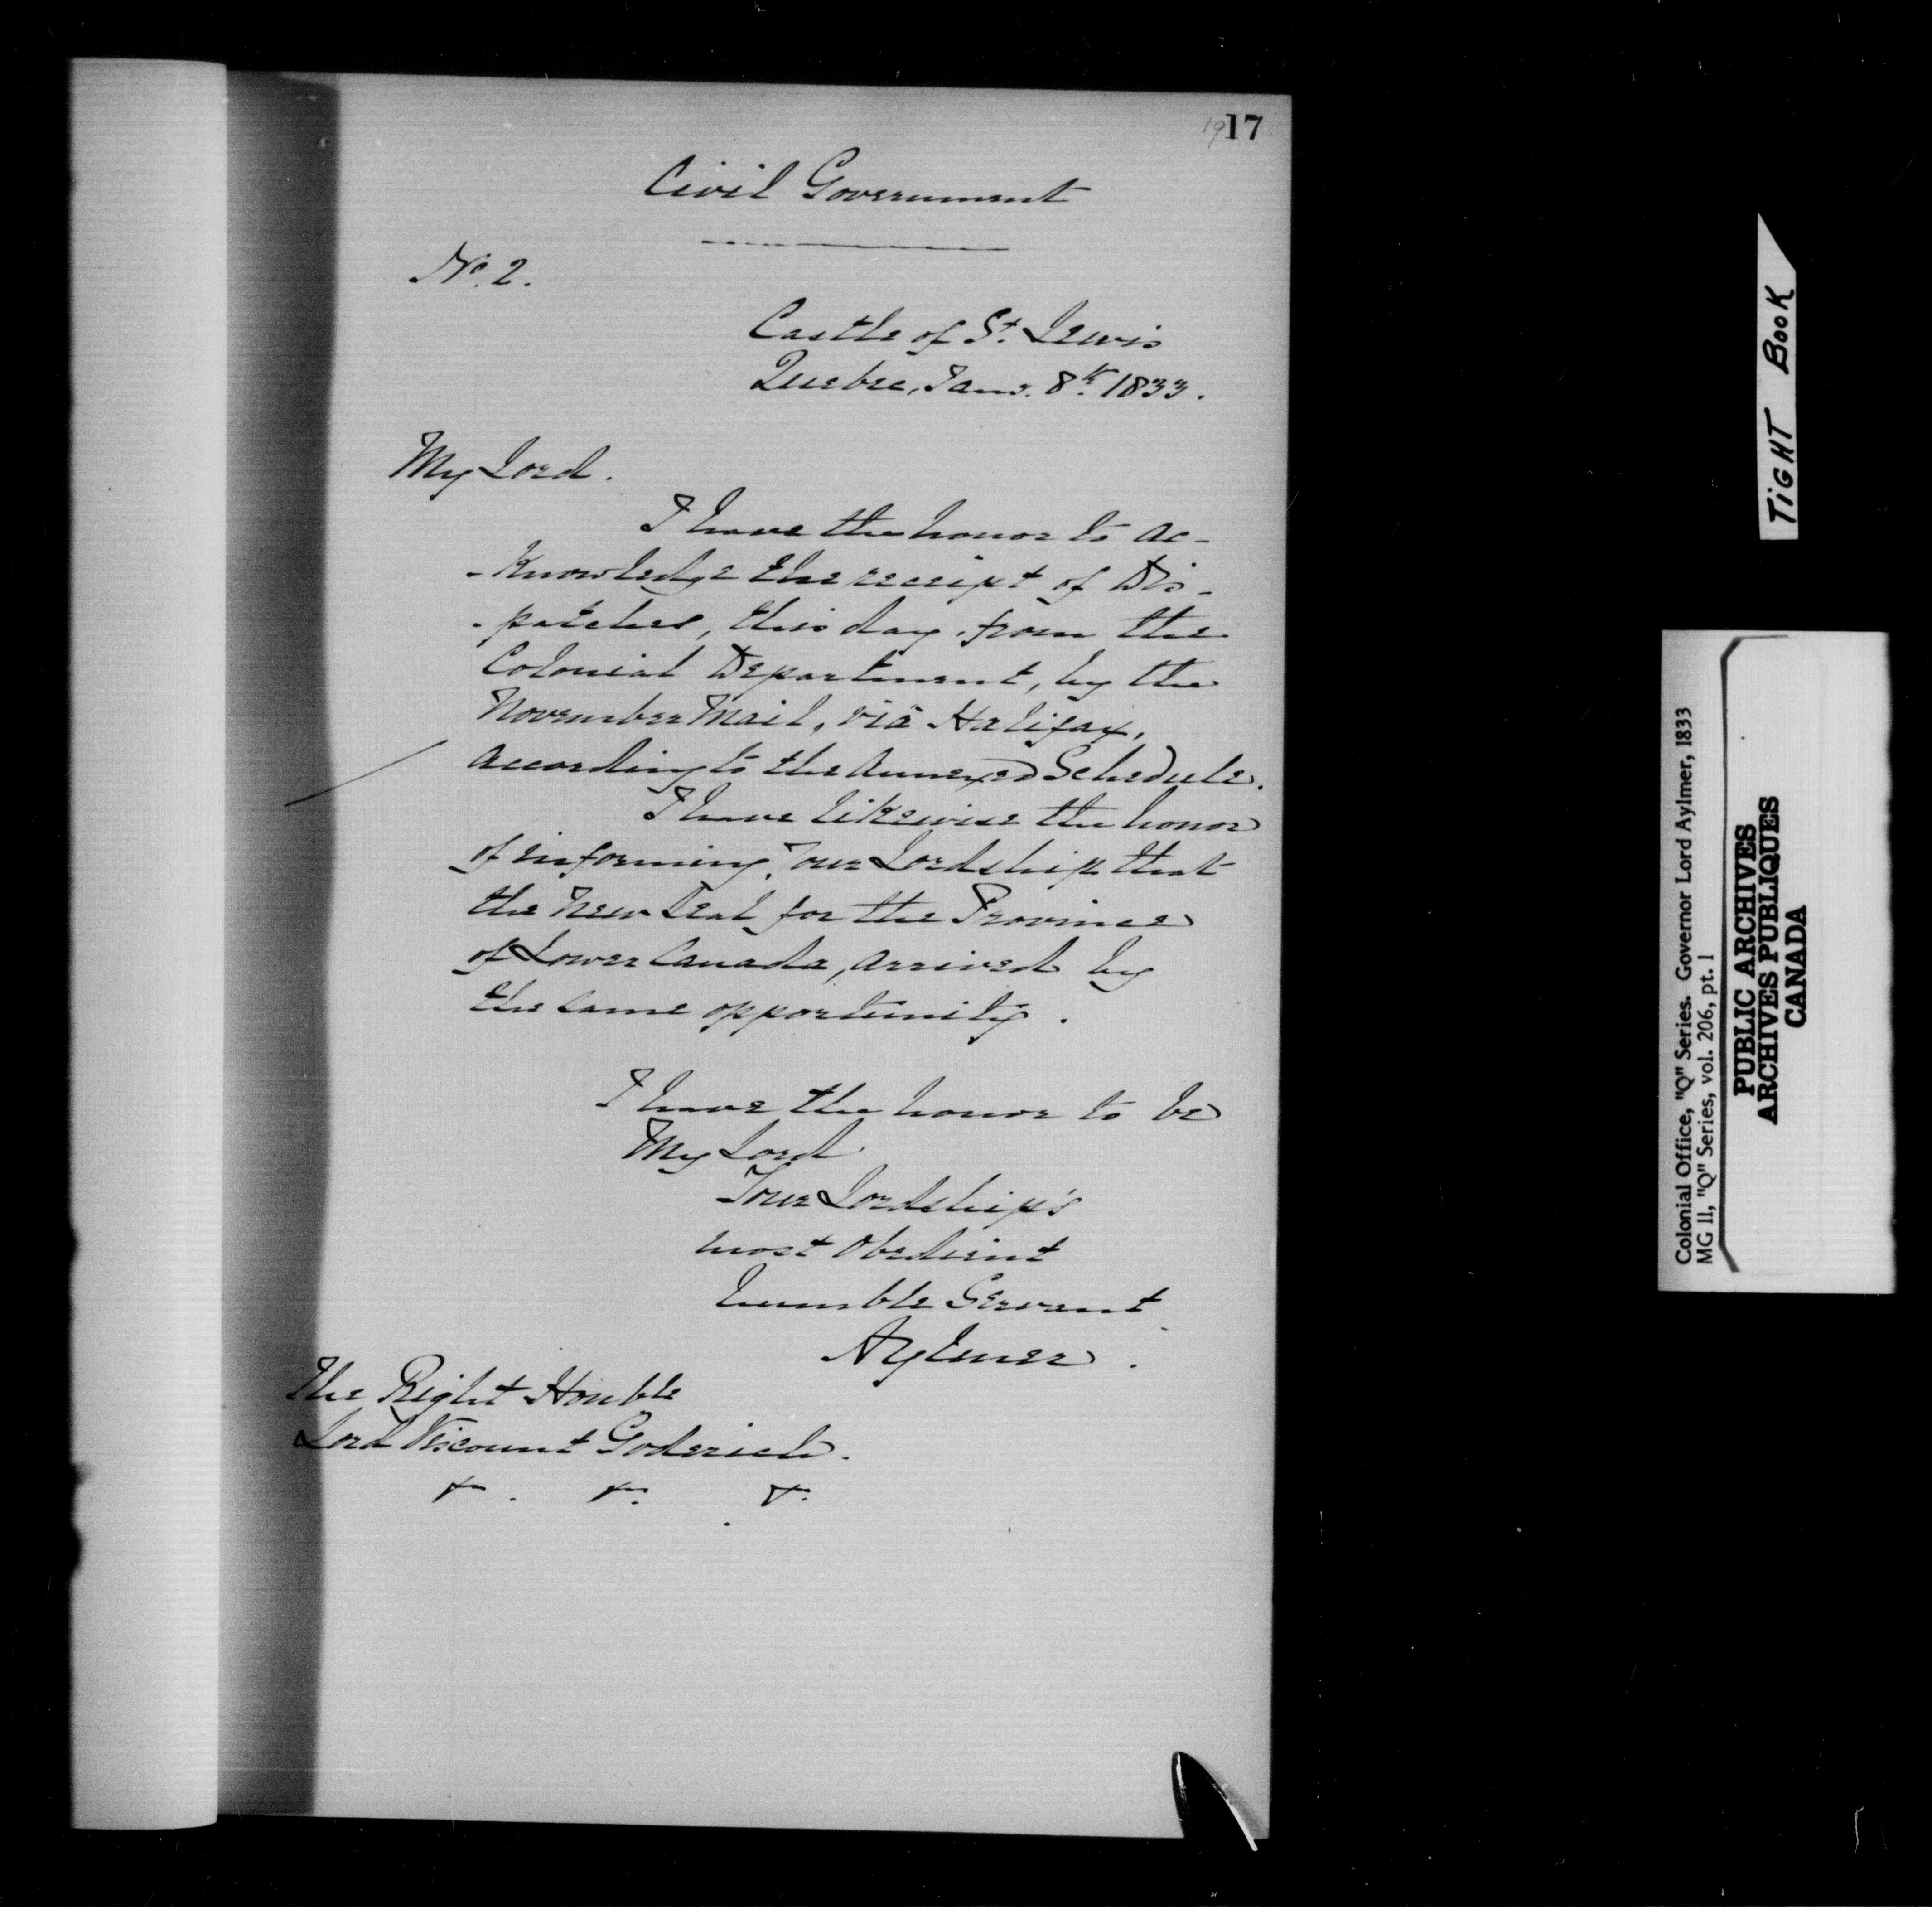 19 17
Civil Government
No. 2.
Castle of St. Lewis
Quebec, Jany. 8th 1833.
My Lord.
I have the honor to ac-
-knowledge the receipt of Dis-
-patches, this day, from the
Colonial Department, by the
November Mail, via Halifax,
according to the Annexed Schedule.
I have likewise the honor
of informing Your Lordship that
the New Seal for the Province
of Lower Canada, arrived by
the same opportunity.
I have the honor to be
My Lord
Your Lordship's
most Obedient
humble Servant
Aylmer.
The Right Honble
Lord Viscount Goderich.
&c. &c. &c.
TIGHT BOOK
Colonial Office, "Q" Series. Governor Lord Aylmer, 1833
MG 11, "Q" Series, vol. 206, pt. 1
PUBLIC ARCHIVES
ARCHIVES PUBLIQUES
CANADA